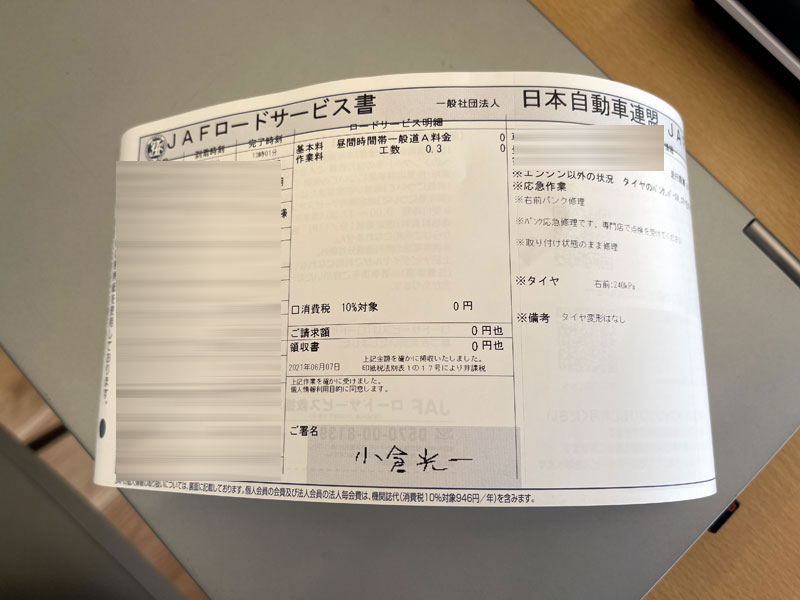 JAFロードサービス書
一般社団法人
日本自動車連盟 JA
到着時刻
完了時刻
12時01分
ロードサービス明細
基本料 昼間時間帯一般道A料金 0
作業料 工数 0.3 0
口消費税 10%対象 0円
ご請求額 0円也
領収書 0円也
2021年06月07日
上記金額を確かに領収いたしました。
印紙税法別表1の17号により非課税
上記作業を確かに受けました。
個人情報利用目的に同意します。
ご署名
小倉光一
※エンジン以外の状況 タイヤのパンク
※応急作業
※右前パンク修理
※パンク応急修理です。専門店で点検を受けてください
※取り付け状態のまま修理
※タイヤ 右前:240kPa
※備考 タイヤ変形はなし
については、裏面に記載しております。個人会員の会費及び法人会員の法人毎会費は、機関誌代(消費税10%対象946円/年)を含みます。